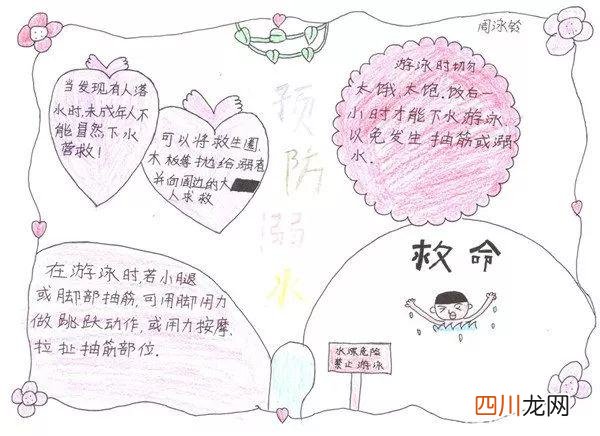 周泳铃
预
防
溺
水
当发现有人落
水时,未成年人不
能冒然下水
营救!
可以将救生圈,
木板等抛给溺者
并向周边的大
人求救
游泳时切勿
太饿、太饱.饭后一
小时才能下水游泳,
以免发生抽筋或溺
水.
救命
在游泳时,若小腿
或脚部抽筋,可用脚用力
做跳跃动作,或用力按摩、
拉扯抽筋部位.
水深危险
禁止游泳
四川龙网